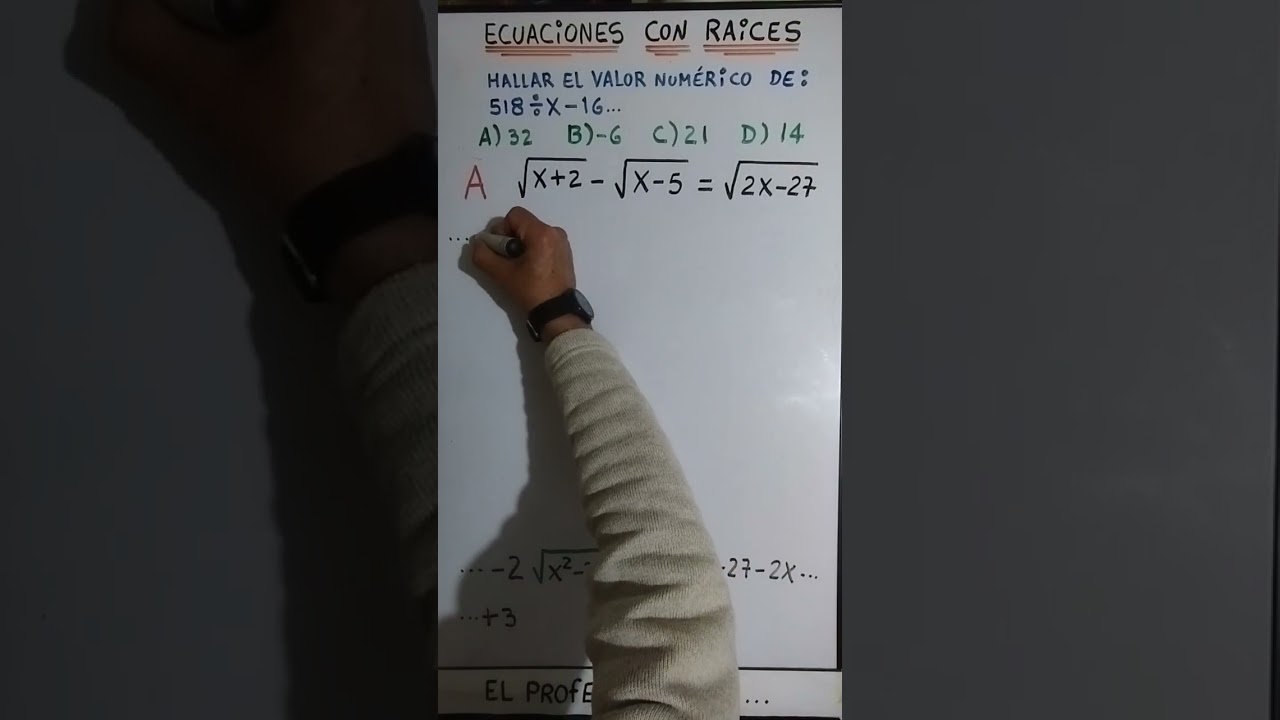 ECUACiONES CON RAiCES
HALLAR EL VALOR NUMÉRiCO DE:
518÷X-16...
A) 32 B)-6 C) 21 D) 14
A √X+2 - √X-5 = √2X-27
...
...-2 √X²- 27-2X...
...+3
EL PROfE ...